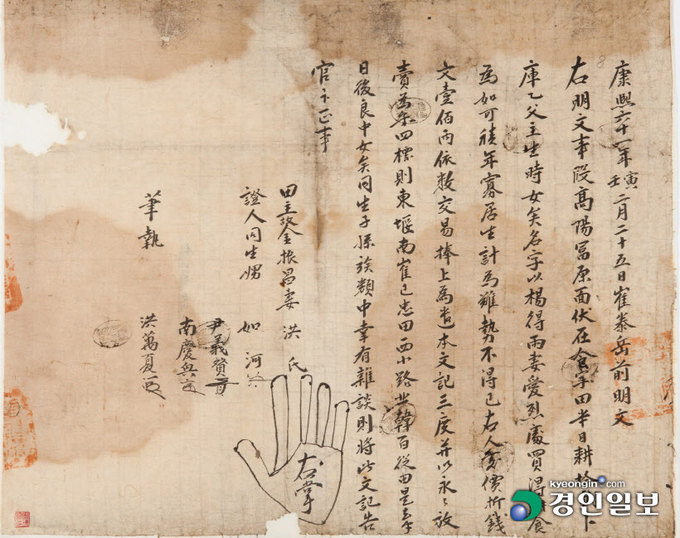 康熙六十一年壬寅二月二十五日崔泰岳前明文
右明文事段高陽冨原面伏在令字田半日耕
庫乙父主生時女矣名字以楊得雨妻愛烈處買得 食
爲如可積年寡居生計爲難勢不得已右人 價折錢
文壹佰兩依數交易捧上爲遣本文記三度并以永〻放
賣爲乎四標則東堰南崔已忠田西小路北韓百從田是去乎
日後良中女矣同生子孫族類中幸有雜談則將此文記告
官卞正事
田主 金振昌妻 洪氏
右掌
證人同生甥 如河
尹義賛
南慶興
筆執 洪萬夏
kyeongin.com
경인일보